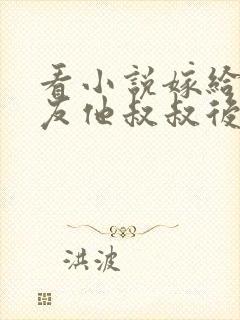 看小說嫁給
友他叔叔後
洪波